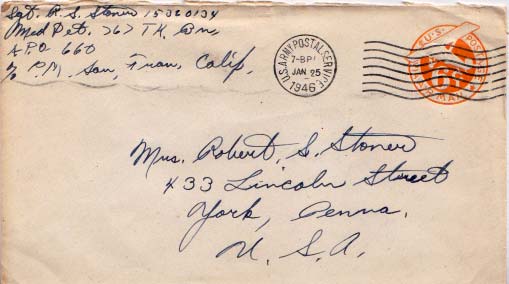 Sgt. R. S. Stoner 15360134
Med Det. 767 TK. Bn.
A.P.O. 660
c/o P.M. San, Fran, Calif.
U.S. ARMY POSTAL SERVICE
JAN 25
1946
U.S. POSTAGE
6¢
Mrs. Robert S. Stoner
433 Lincoln Street
York, Penna.
U. S. A.